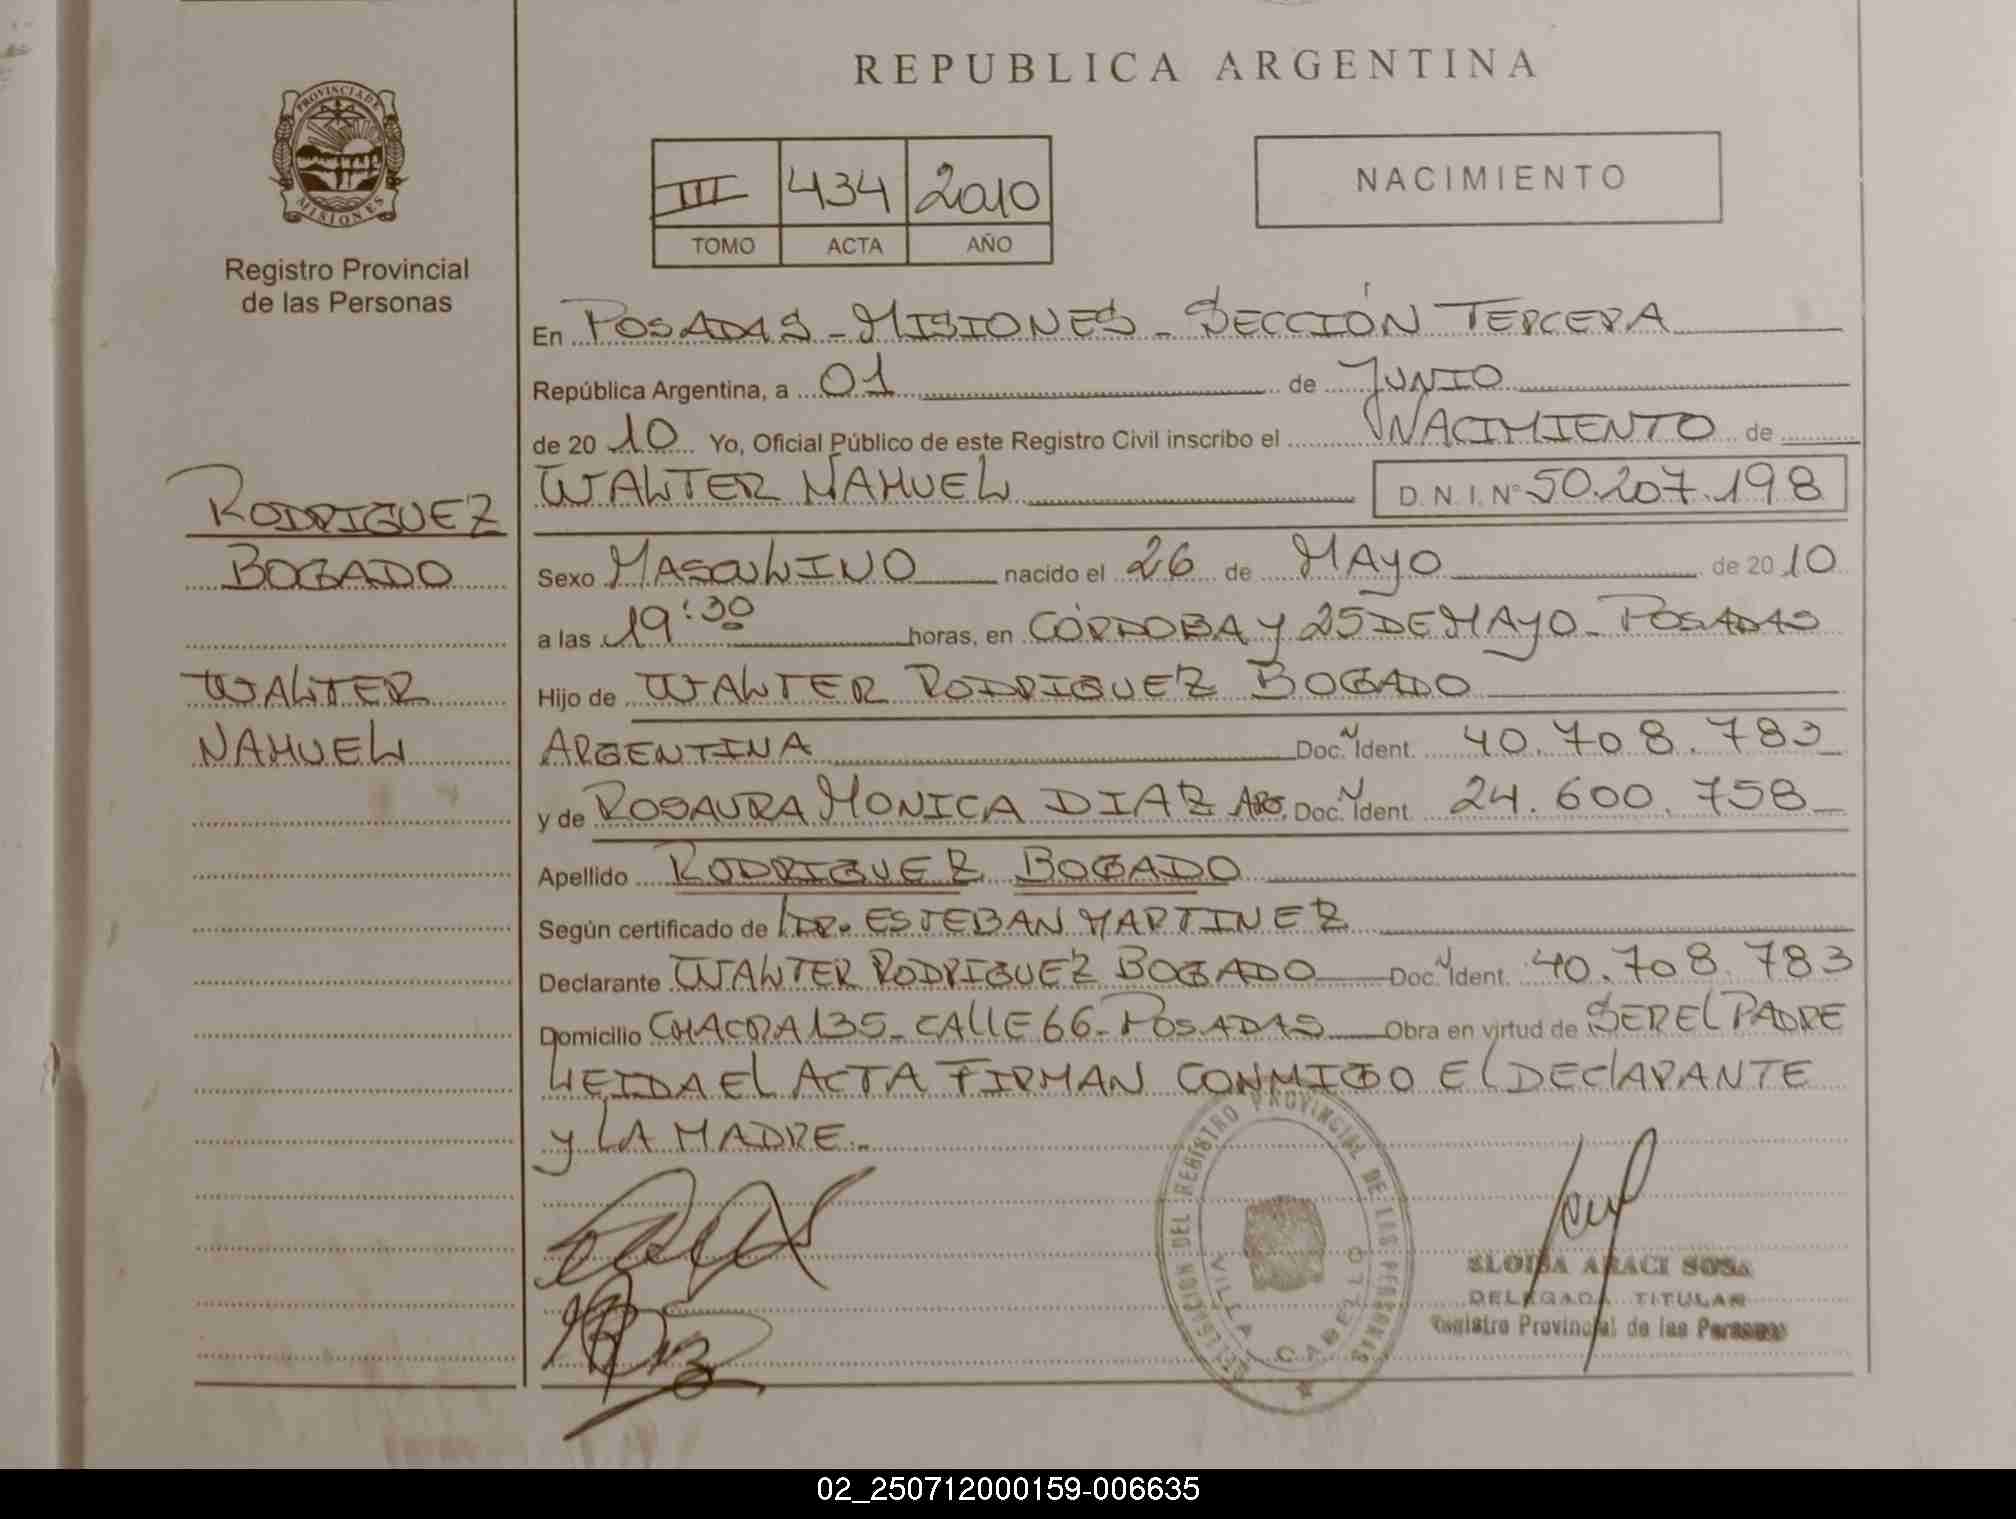 REPUBLICA ARGENTINA
PROVINCIA DE
MISIONES
Registro Provincial
de las Personas
III 434 2010
TOMO ACTA AÑO
NACIMIENTO
En POSADAS - MISIONES - SECCIÓN TERCERA
República Argentina, a 01 de JUNIO
de 20 10 Yo, Oficial Público de este Registro Civil inscribo el NACIMIENTO de
WALTER NAHUEL D.N.I. Nº 50.207.198
RODRIGUEZ
BOGADO
WALTER
NAHUEL
Sexo MASCULINO nacido el 26 de MAYO de 20 10
a las 19:30 horas, en CÓRDOBA Y 25 DE MAYO - POSADAS
Hijo de WALTER RODRIGUEZ BOGADO
ARGENTINA Doc. Ident. 40.708.783
y de ROSAURA MONICA DIAZ ARG. Doc. Ident. 24.600.758
Apellido RODRIGUEZ BOGADO
Según certificado de DR. ESTEBAN MARTINEZ
Declarante WALTER RODRIGUEZ BOGADO Doc. Ident. 40.708.783
Domicilio CHACRA 135 - CALLE 66 - POSADAS Obra en virtud de SER EL PADRE
LEIDA EL ACTA FIRMAN CONMIGO EL DECLARANTE
Y LA MADRE.-
DELEGACION DEL REGISTRO PROVINCIAL DE LAS PERSONAS
VILLA CABELLO
ELOISA ARACI SOSA
DELEGADA TITULAR
Registro Provincial de las Personas
02_250712000159-006635